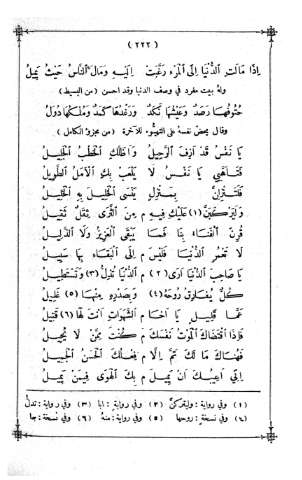 (٢٢٢)
إِذَا مَالَتِ الدُّنْيَا إِلَى الْمَرْءِ رَغَّبَتْ إِلَيْهِ وَمَالَ النَّاسُ حَيْثُ يَمِيلُ
وله بيت مفرد في وصف الدنيا وقد احسن (من البسيط)
حُتُوفُهَا رَصَدٌ وَعَيْشُهَا نَكَدٌ وَرَغْدُهَا كَمَدٌ وَمُلْكُهَا دُوَلُ
وقال يحضّ نفسهُ على التهيُّو للآخرة (من مجزوّ الكامل)
يَا نَفْسُ قَدْ أَزِفَ الرَّحِيلُ وَأَظَلَّكِ الْخَطْبُ الْجَلِيلُ
فَتَأَهَّبِي يَا نَفْسُ لَا يَلْعَبْ بِكِ الْأَمَلُ الطَّوِيلُ
فَلَتَنْزِلِنَّ بِمَنْزِلٍ يَنْسَى الْخَلِيلَ بِهِ الْخَلِيلُ
وَلَيَرْكَبَنَّ (١) عَلَيْكِ فِيهِ م مِنَ الثَّرَى ثِقْلٌ ثَقِيلُ
قُرِنَ الْفَنَاءُ بِنَا فَمَا يَبْقَى الْعَزِيزُ وَلَا الذَّلِيلُ
لَا تَعْمُرِ الدُّنْيَا فَلَيْسَ م إِلَى الْبَقَاءِ بِهَا سَبِيلُ
يَا صَاحِبَ الدُّنْيَا أَرَى (٢) م الدُّنْيَا تُذِلُّ (٣) وَتَسْتَطِيلُ
كُلٌّ يُفَارِقُ رُوحَهُ (٤) وَبِصَدْرِهِ مِنْهَا (٥) غَلِيلُ
عَمَّا قَلِيلٍ يَا أَخَا م الشَّهَوَاتِ أَنْتَ لَهَا (٦) قَتِيلُ
فَإِذَا اقْتَضَاكَ الْمَوْتُ نَفْسَكَ م كُنْتَ مِمَّنْ لَا يُحِيلُ
فَهُنَاكَ مَا لَكَ ثَمَّ إِلَّا م فِعْلُكَ الْحَسَنُ الْجَمِيلُ
إِنِّي أُعِيذُكَ أَنْ يَمِيلَ م بِكَ الْهَوَى فِيمَنْ يَمِيلُ
(١) وفي رواية: وليتركنَّ (٢) وفي رواية: ايا (٣) وفي رواية: تدلُّ
(٤) وفي نسخة: روحها (٥) وفي رواية: منهُ (٦) وفي نسخة: بها